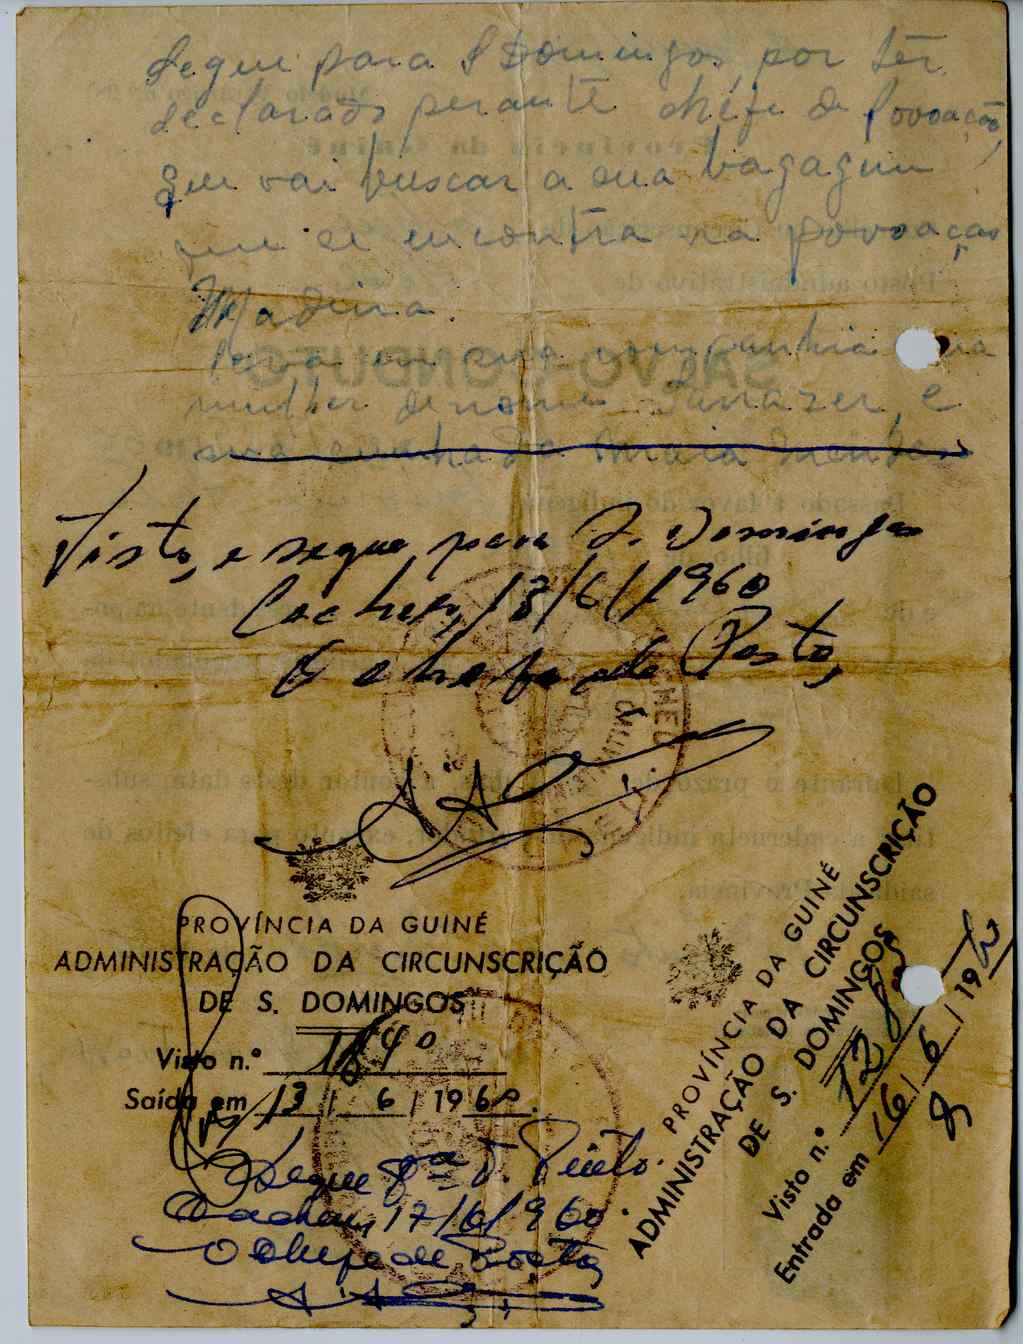 Segue para S Domingos, por ter
declarado perante chefe de Povoação,
que vai buscar a sua bagagem
que se encontra na povoação
Madina.
Leva em sua companhia sua
mulher de nome e
sua cunhada Maria
Visto, e segue para S. Domingos
Cacheu, 13/6/1960
O chefe do Posto,
PROVÍNCIA DA GUINÉ
ADMINISTRAÇÃO DA CIRCUNSCRIÇÃO
DE S. DOMINGOS
Visto n.º 184º
Saída em 13/6/1960.
Segue pª T. Pinto.
Cacheu, 17/6/960.
O Chefe de Posto,
PROVÍNCIA DA GUINÉ
ADMINISTRAÇÃO DA CIRCUNSCRIÇÃO
DE S. DOMINGOS
Visto n.º
Entrada em 16/6/1960